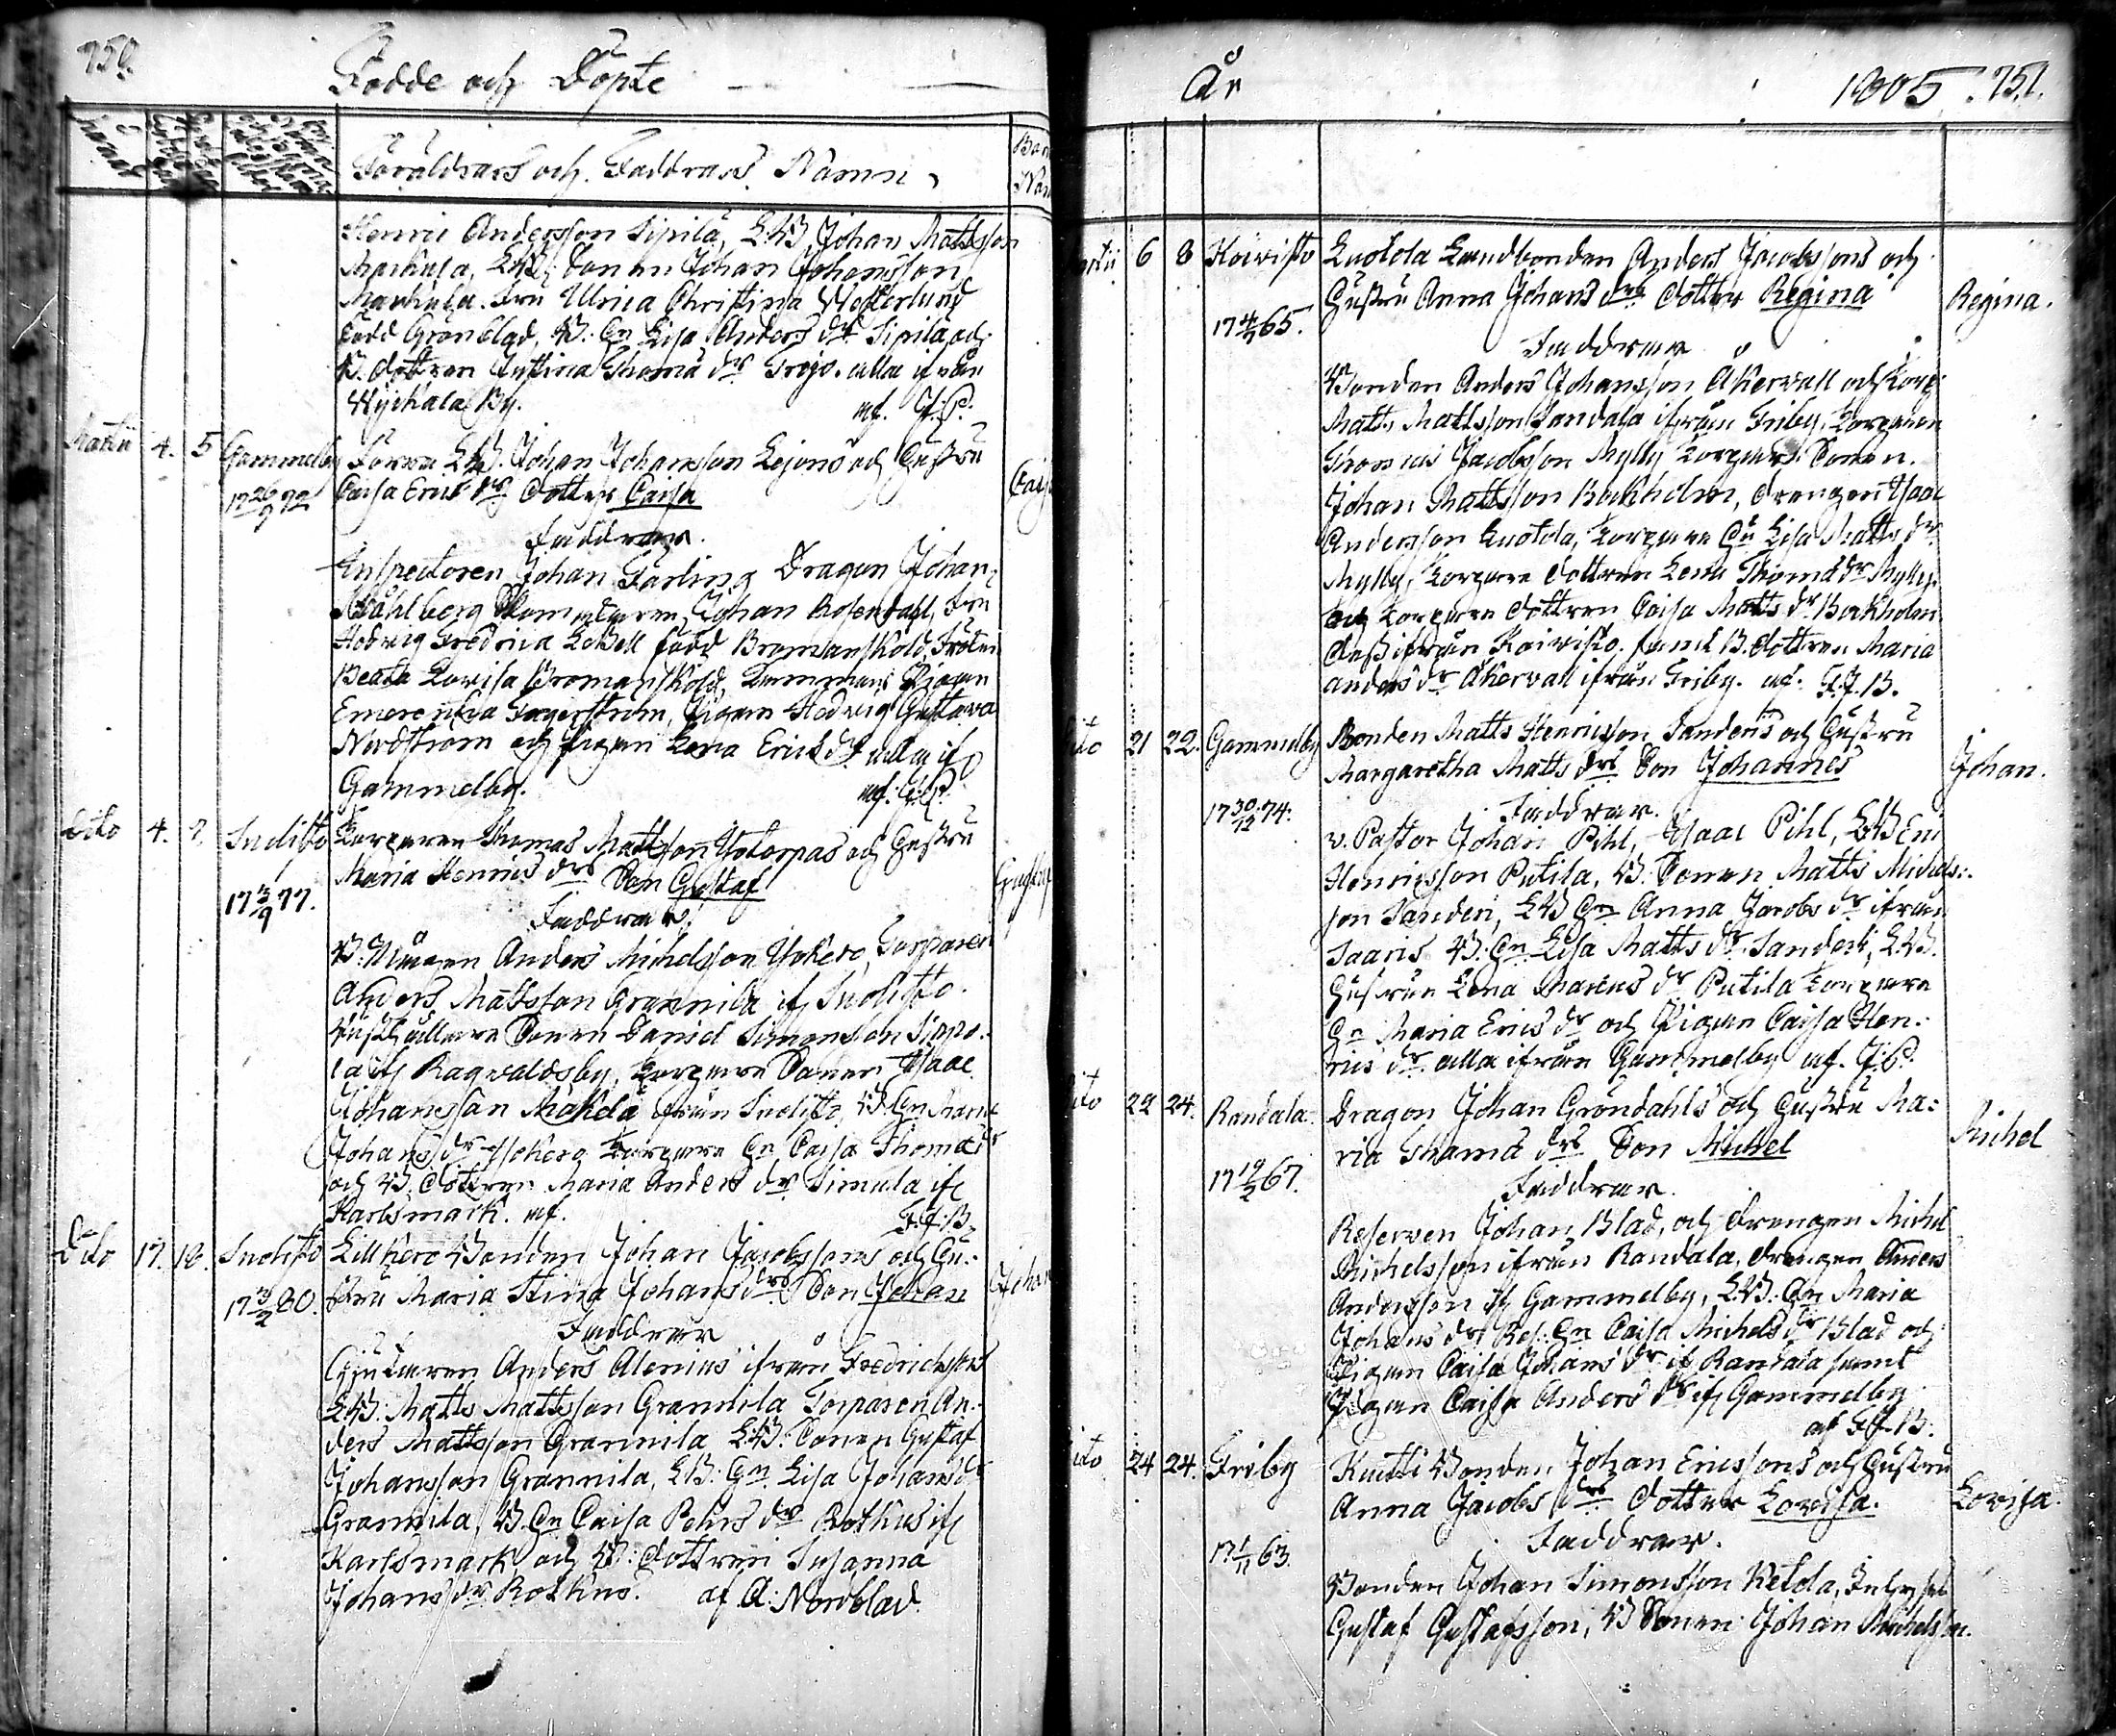 750.
Födde och Döpte
Månad
Föräldrars och Faddrars Namn
Barn
Nam
Henric Andersson Sipilä, LB Johan Mattsson
Markula, LB: Sonen Johan Johansson
Markula. Fru Ulrica Christina Westerlund
född Grönblad, B: Hu Lisa Anders dr Sipilä och
B. dottren Justina Thomæ dr Frijs. alla ifrån
Kyrkala By. af. J:P.
Martii 4. 5 Gammelby Torra LB. Johan Johansson Lejons och Hustru
17 26/9 72 Caisa Erics drs dotter Caisa
Caisa
Faddrar.
Inspectoren Johan Färling Dragon Johan
Ståhlberg Skomakaren Johan Rosendahl, Fru
Hedwig Fredrica LoBell född Bromanskold, Fröken
Beata Lovisa Bromanskold, Kammars Pigan
Emerentia Fagerström, Pigan Hedvig Gustava
Nordström och Pigan Lena Erics dr alla if
Gammelby. af. J:P.
Dito 4. 7. Suolisto Torparen Thomas Mattsson Ylotorpas och Hustru
17 3/9 77. Maria Henrics drs Son Gustaf
Gustaf
Faddrar.
B. Mågen Anders Michelsson Yliker, Torparen
Anders Mattsson Grannila if Suolisto.
Rusthållare Sonen Daniel Simonsson Simo-
la if Ragvaldsby, Torpare Sonen Isaac
Johansson Mäkelä ifrån Suolisto, B. Hu Maria
Johans dr Isokero Torpare Hu Caisa Thomæ dr
och B. dottren Maria Anders dr Simula if
Karlsmark. af. F.J:B.
Dito 17. 18. Suolisto Lillkero Bonden Johan Jacobssons och Hu-
17 3/2 80. stru Maria Stina Johans drs Son Johan
Johan
Faddrar
Gjutaren Anders Alenius ifrån Fredrichsfors
LB. Matts Mattsson Grannila Torparen An-
ders Mattsson Grannila LB. Sonen Gustaf
Johansson Grannila, LB. Hu Lisa Johans dr
Grannila, B. Hu Caisa Pehrs dr Rotkus if
Karlsmark och B. dottren Susanna
Johans dr Rotkus. af A: Nordblad.
År 1805. 751.
Martii 6 8 Koivisto Luotola Landbonden Anders Jacobssons och
Hustru Anna Johans drs dotter Regina
Regina.
17 4/7 65.
Faddrar
Bonden Anders Johansson Åkervall och Torp.
Matts Mattsson Sandala ifrån Friby, Torparen
Thomas Jacobsson Mylly Torpare Sonen.
Johan Mattsson Backholm, Drengen Isaac
Andersson Luotola, Torpare Hu Lisa Matts dr
Mylly, Torpare dottren Lena Thomæ dr Mylly
och Torpare dottren Caisa Matts dr Backholm
dess ifrån Koivisto. samt B. dottren Maria
Anders dr Åkervall ifrån Friby. af. F.J.B.
Dito 21 22. Gammelby Bonden Matts Henricsson Sanderis och Hustru
Margaretha Matts drs Son Johannes
Johan.
17 30/12 74.
Faddrar.
v. Pastor Johan Pihl, Isaac Pihl, LB Eric
Henricsson Putila, B. Sonen Matts Michels-
son Sanderi, LB Hu Anna Jacobs dr ifrån
Saaris B. Hu Lisa Matts dr Sanderi, LB.
Hustrun Lena Marcus dr Putila Torpare
Hu Maria Erics dr och Pigan Caisa Hen-
rics dr alla ifrån Gammelby af. J:P.
Dito 22 24. Randala. Dragon Johan Gröndahls och Hustru Ma-
ria Thomæ drs Son Michel
Michel
17 19/2 67.
Faddrar.
Reserven Johan Blad, och Drengen Michel
Michelsson ifrån Randala, Drengen Anders
Andersson if Gammelby, LB. Hu Maria
Johans dr, Res. Hu Caisa Michels dr Blad och
Pigan Caisa Johans dr if Randala samt
Pigan Caisa Anders dr if Gammelby
af F.J.B.
Dito 24 24. Friby Knuti Bonden Johan Ericssons och Hustru
Anna Jacobs drs dotter Lovisa.
Lovisa.
17 1/11 63.
Faddrar.
Bonden Johan Simonsson Ketola, Inhyses
Gustaf Gustafsson, B Sonen Johan Michelsson.